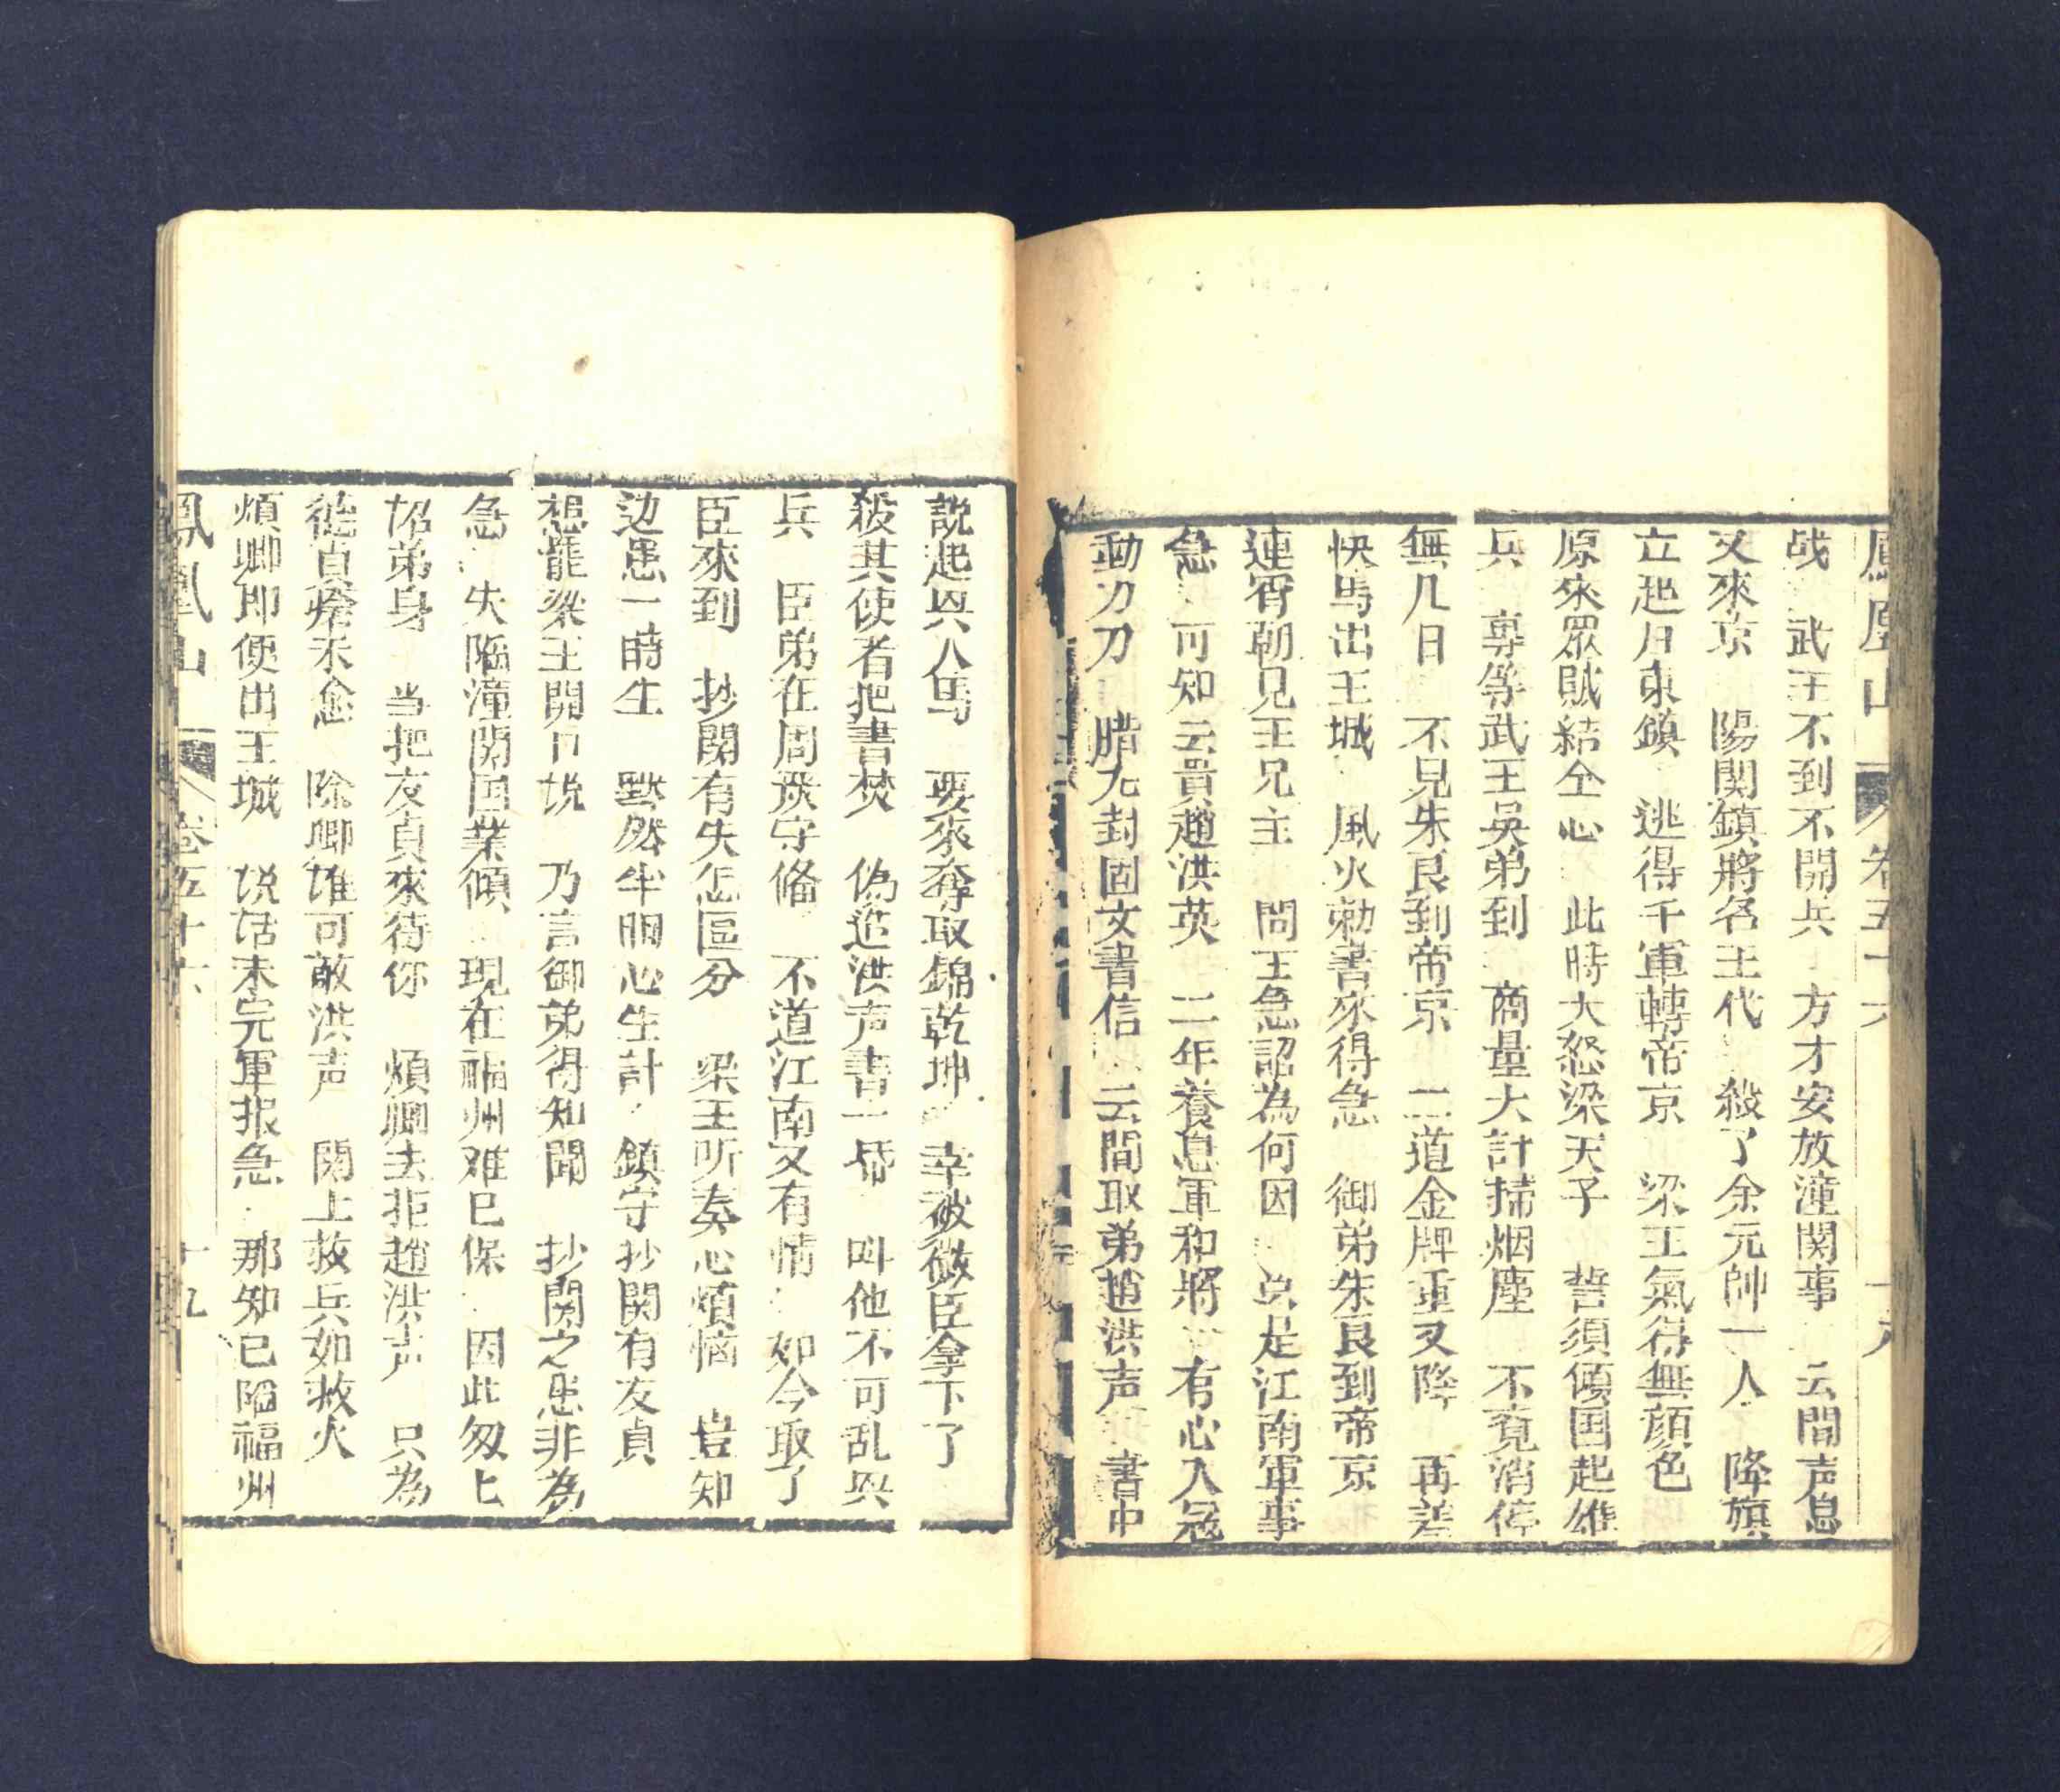 鳳凰山 卷五十六 十八
战 武王不到不開兵 方才安放潼関事 云間声息
又來京 陽関鎮將名王代 殺了余元帥一人 降旗
立起归東鎮 逃得千軍轉帝京 梁王氣得無顔色
原來眾賊結仝心 此時大怒梁天子 誓須傾国起雄
兵 專等武王吳弟到 商量大計掃烟塵 不覓消停
無几日 不見朱良到帝京 二道金牌重又降 再差
快馬出王城 風火勅書來得急 御弟朱良到帝京
連宵朝見王兄主 問王急詔為何因 总是江南軍事
急 可知云貴趙洪英 二年養息軍和將 有心入冦
動刀刀 腊九封固文書信 云間取弟趙洪声 書中
說起與人馬 要來奪取錦乾坤 幸被微臣拿下了
殺其使者把書焚 偽造洪声書一帋 叫他不可乱與
兵 臣弟在周発守俻 不道江南又有情 如今取了
臣來到 抄関有失怎區分 梁王听奏心煩惱 豈知
边患一時生 默然半晌心生計 鎮守抄関有友貞
想罷梁王開口说 乃言御弟得知聞 抄関之患非為
急 失陥潼関国業傾 現在福州难已保 因此匆匕
招弟身 当把友貞來待你 煩卿去拒趙洪声 只為
從真瘡未愈 除卿誰可敵洪声 関上救兵如救火
煩卿即便出王城 说话未完軍报急 那知已陥福州
鳳凰山 卷五十六 十九